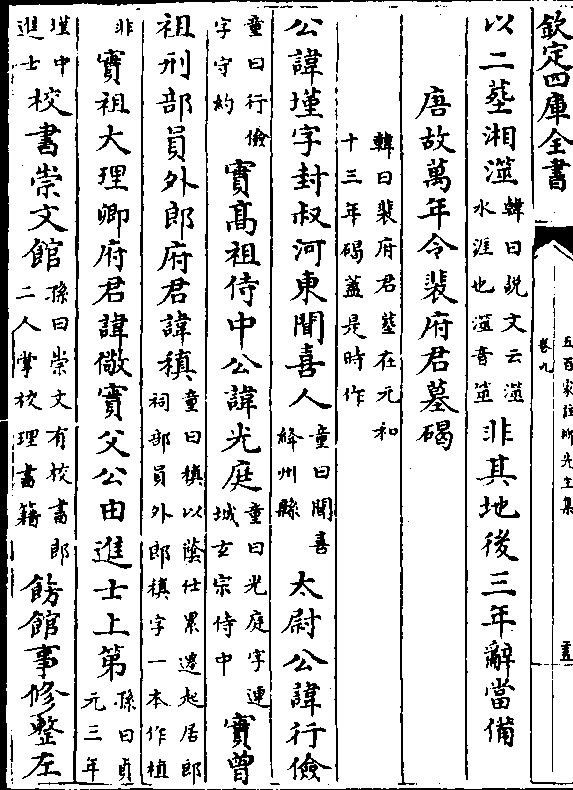 欽定四庫全書
五百家註柳先生集
卷九
以二塟湘澨韓曰説文云澨水涯也澨音筮非其地後三年辭當備
唐故萬年令裴府君墓碣
韓曰裴府君塟在元和十三年碣蓋是時作
公諱墐字封叔河東聞喜人童曰聞喜絳州縣太尉公諱行儉
童曰行儉字守約實髙祖侍中公諱光庭童曰光庭字連城玄宗侍中實曾
祖刑部員外郎府君諱稹童曰稹以蔭仕累遷起居郎祠部員外郎稹字一本作植
非實祖大理卿府君諱儆實父公由進士上第孫曰貞元三年
墐中進士校書崇文館孫曰崇文有校書郎二人掌校理書籍飭館事修整左